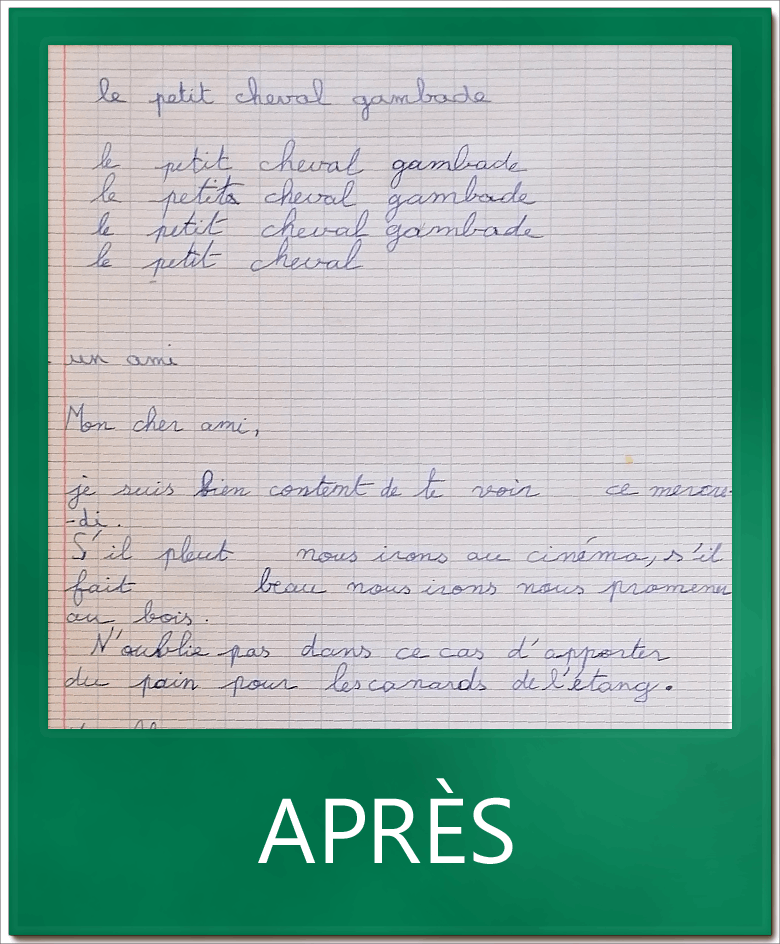 le petit cheval gambade
le petit cheval gambade
le petits cheval gambade
le petit cheval gambade
le petit cheval
un ami
Mon cher ami,
je suis bien content de te voir ce mercre-
-di.
S'il pleut nous irons au cinéma, s'il
fait beau nous irons nous promener
au bois.
N'oublie pas dans ce cas d'apporter
du pain pour les canards de l'étang.
APRÈS